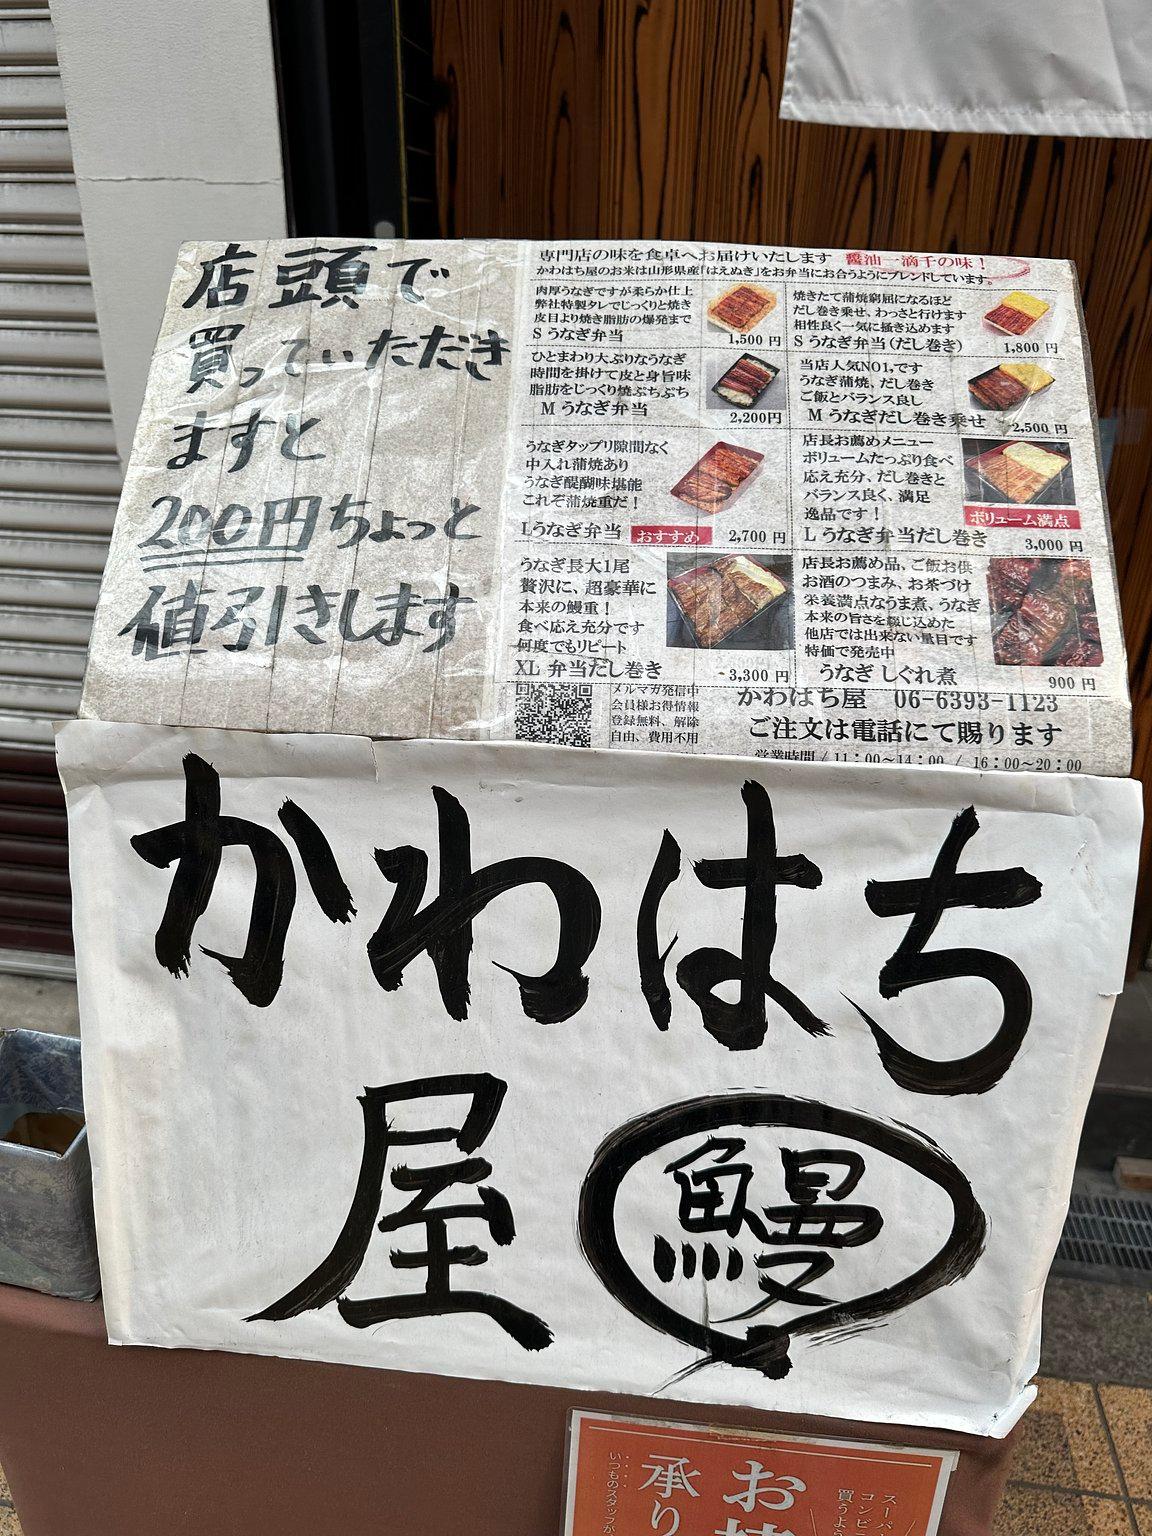 店頭で
買っていただき
ますと
200円ちょっと
値引きします
専門店の味を食卓へお届けいたします 醤油一滴千の味！
かわはち屋のお米は山形県産「はえぬき」をお弁当にお合うようにブレンドしています。
肉厚うなぎですが柔らか仕上
弊社特製タレでじっくりと焼き
皮目より焼き脂肪の爆発まで
S うなぎ弁当
1,500 円
焼きたて蒲焼窮屈になるほど
だし巻き乗せ、わっさと行けます
相性良く一気に掻き込めます
S うなぎ弁当(だし巻き)
1,800 円
ひとまわり大ぶりなうなぎ
時間を掛けて皮と身旨味
脂肪をじっくり焼ぷちぷち
M うなぎ弁当
2,200円
当店人気NO1,です
うなぎ蒲焼、だし巻き
ご飯とバランス良し
M うなぎだし巻き乗せ
2,500 円
うなぎタップリ隙間なく
中入れ蒲焼あり
うなぎ醍醐味堪能
これぞ蒲焼重だ！
Lうなぎ弁当 おすすめ 2,700 円
店長お薦めメニュー
ボリュームたっぷり食べ
応え充分、だし巻きと
バランス良く、満足
逸品です！
ボリューム満点
L うなぎ弁当だし巻き
3,000 円
うなぎ長大1尾
贅沢に、超豪華に
本来の鰻重！
食べ応え充分です
何度でもリピート
XL 弁当だし巻き
3,300 円
店長お薦め品、ご飯お供
お酒のつまみ、お茶づけ
栄養満点なうま煮、うなぎ
本来の旨さを閉じ込めた
他店では出来ない量目です
特価で発売中
うなぎ しぐれ煮
900 円
メルマガ発信中
会員様お得情報
登録無料、解除
自由、費用不用
かわはち屋 06-6393-1123
ご注文は電話にて賜ります
営業時間 / 11：00〜14：00 / 16：00〜20：00
かわはち
屋 鰻
スーパー
コンビニ
買うよう
お
承り
いつものスタッフが